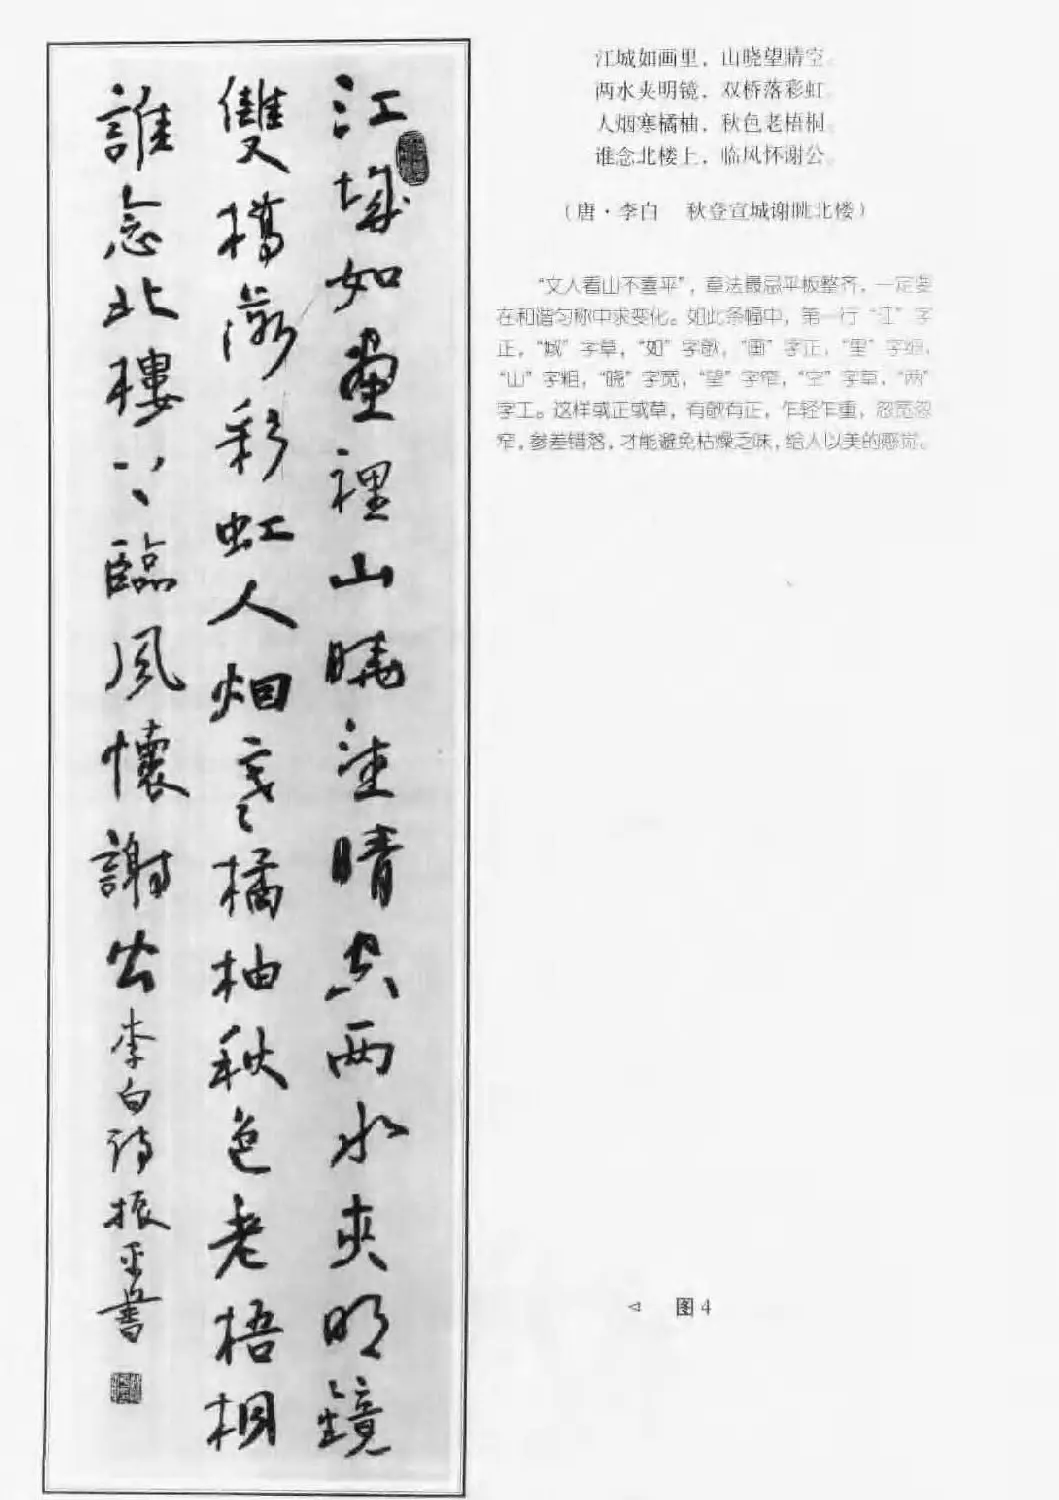 江城如畫裡山曉望晴空兩水夾明鏡
雙橋落彩虹人烟寒橘柚秋色老梧桐
誰念北樓上臨風懷謝公李白詩振平書
江城如画里，山晓望晴空。
两水夹明镜，双桥落彩虹。
人烟寒橘柚，秋色老梧桐。
谁念北楼上，临风怀谢公。
（唐·李白　秋登宣城谢眺北楼）
“文人看山不喜平”，章法最忌平板整齐，一定要
在和谐匀称中求变化。如此条幅中，第一行“江”字
正，“城”字草，“如”字欹，“画”字正，“里”字细，
“山”字粗，“晓”字宽，“望”字窄，“空”字草，“两”
字工。这样或正或草，有欹有正，乍轻乍重，忽宽忽
窄，参差错落，才能避免枯燥乏味，给人以美的感觉。
◁ 图4